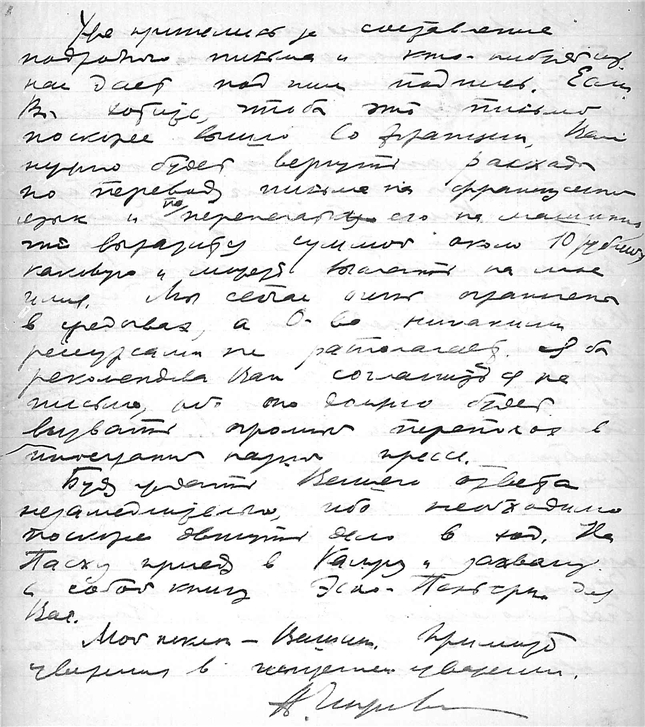 Уже принялись за составление
подробного письма и кто-нибудь из
нас даст под ним подпись. Если
Вы хотите, чтоб это письмо
поскорее вышло во Франции, Вам
нужно будет вернуть расходы
по переводу письма на французский
язык и по перепечатке его на машинке
что выразится суммой около 10 рублей
каковую и можете выслать на мое
имя. Мы сейчас очень ограничены
в средствах, а О-во никакими
ресурсами не располагает. Я бы
рекомендовал Вам согласиться на
письмо, ибо оно должно будет
вызвать огромный переполох в
иностранной научной прессе.
Буду ждать Вашего ответа
незамедлительно, ибо необходимо
поскорее двинуть дело в ход. На
Пасху приеду в Калугу и захвачу
с собой книгу Эсно-Пельтри для
Вас.
Мой поклон – Вашим. Примите
уверения в уважении.
А. Чижевский